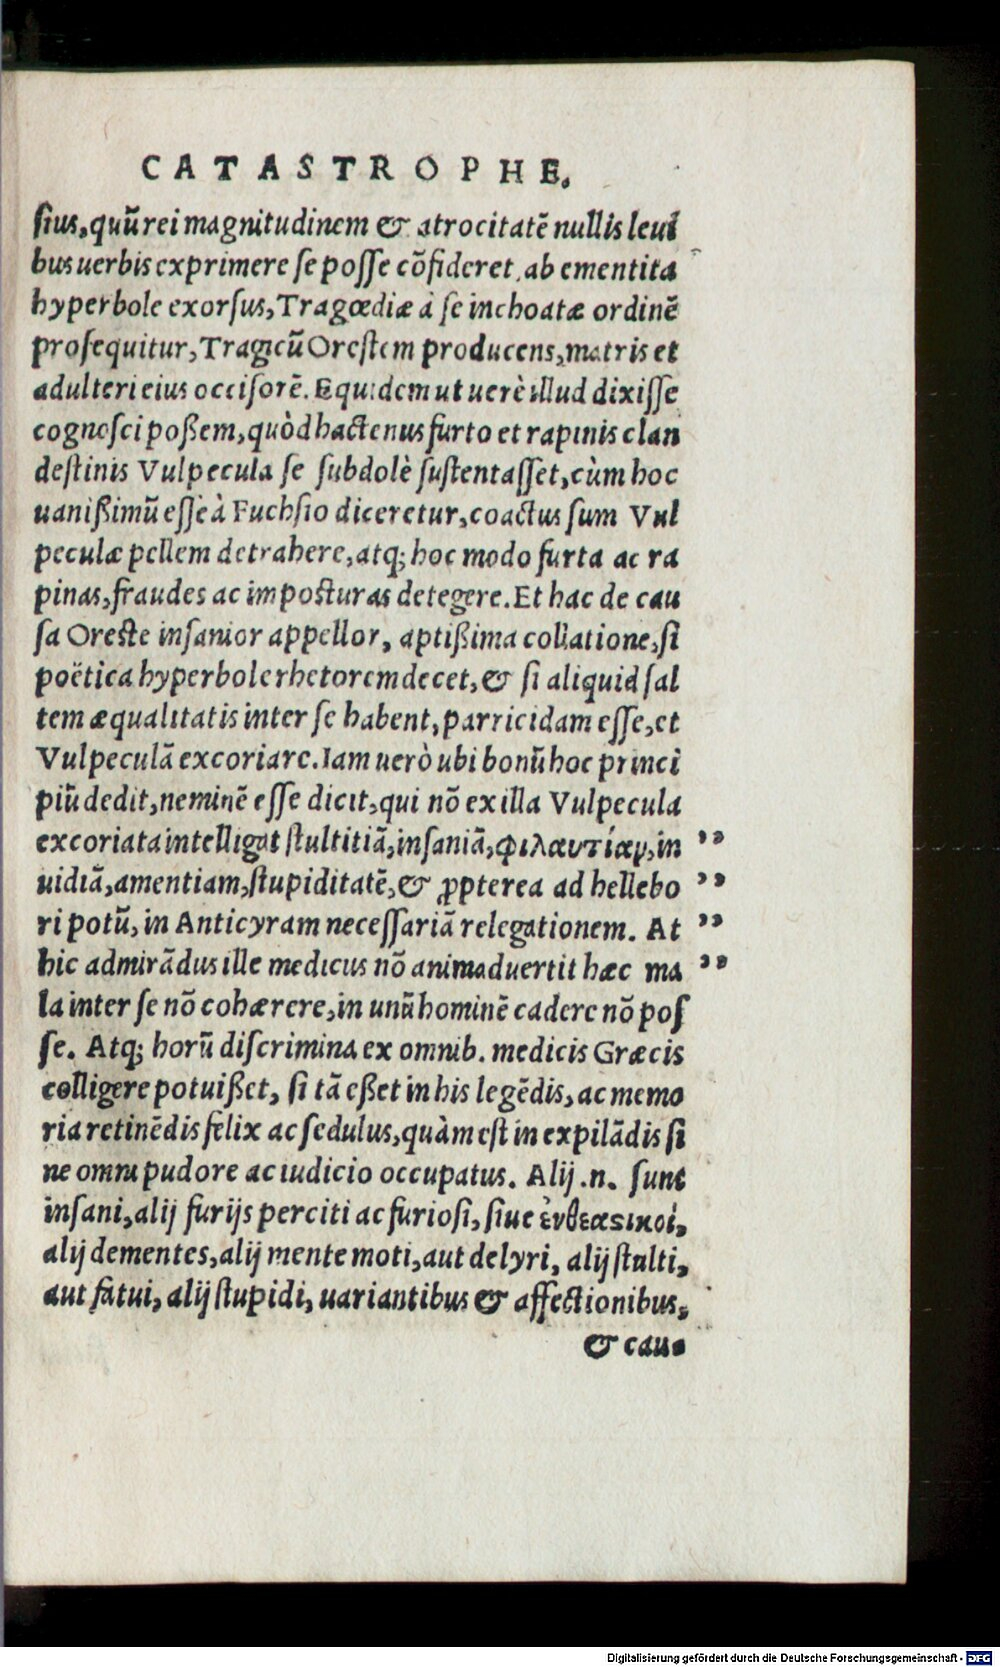 CATASTROPHE.
sius, quũ rei magnitudinem & atrocitatẽ nullis leui
bus uerbis exprimere se posse cõfideret, ab ementita
hyperbole exorsus, Tragœdiæ à se inchoatæ ordinẽ
prosequitur, Tragicũ Orestem producens, matris et
adulteri eius occisorẽ. Equidem ut uerè illud dixisse
cognosci poßem, quòd hactenus furto et rapinis clan
destinis Vulpecula se subdolè sustentasset, cùm hoc
uanißimũ esse à Fuchsio diceretur, coactus sum Vul
peculæ pellem detrahere, atq; hoc modo furta ac ra
pinas, fraudes ac imposturas detegere. Et hac de cau
sa Oreste insanior appellor, aptißima collatione, si
poëtica hyperbole rhetorem decet, & si aliquid sal
tem æqualitatis inter se habent, parricidam esse, et
Vulpeculã excoriare. Iam uerò ubi bonũ hoc princi
piũ dedit, neminẽ esse dicit, qui nõ ex illa Vulpecula
excoriata intelligat stultitiã, insaniã, φιλαυτίαν, in ”
uidiã, amentiam, stupiditatẽ, & ꝓpterea ad hellebo ”
ri potũ, in Anticyram necessariã relegationem. At ”
hic admirãdus ille medicus nõ animaduertit hæc ma ”
la inter se nõ cohærere, in unũ hominẽ cadere nõ pos
se. Atq; horũ discrimina ex omnib. medicis Græcis
colligere potuißet, si tã eßet in his legẽdis, ac memo
ria retinẽdis felix ac sedulus, quàm est in expilãdis si
ne omni pudore ac iudicio occupatus. Alij .n. sunt
insani, alij furijs perciti ac furiosi, siue ἐνθεαστικοί,
alij dementes, alij mente moti, aut delyri, alij stulti,
aut fatui, alij stupidi, uariantibus & affectionibus,
& cau-
Digitalisierung gefördert durch die Deutsche Forschungsgemeinschaft - DFG